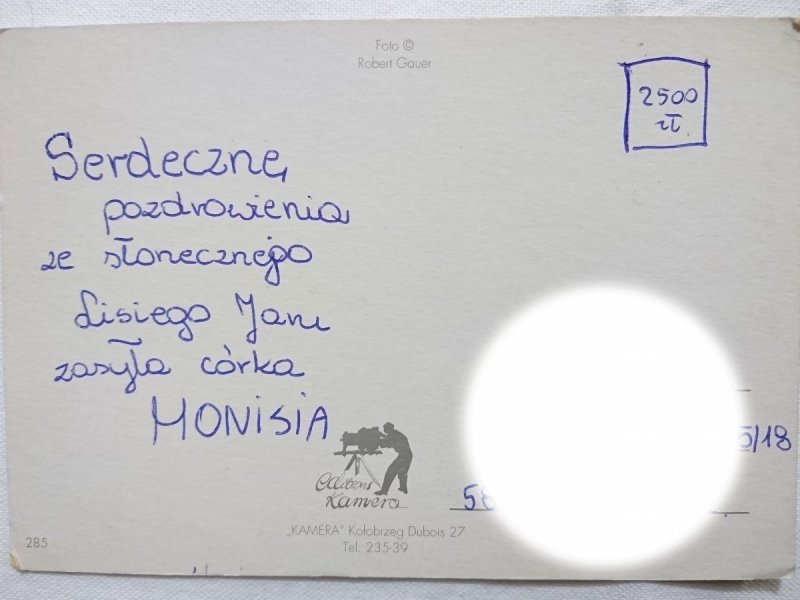 Foto ©
Robert Gauer
2500
zł
Serdeczne
pozdrowienia
ze słonecznego
Lisiego Jaru
zasyła córka
MONISIA
5/18
58
Editions
Kamera
„KAMERA" Kołobrzeg Dubois 27
Tel. 235-39
285